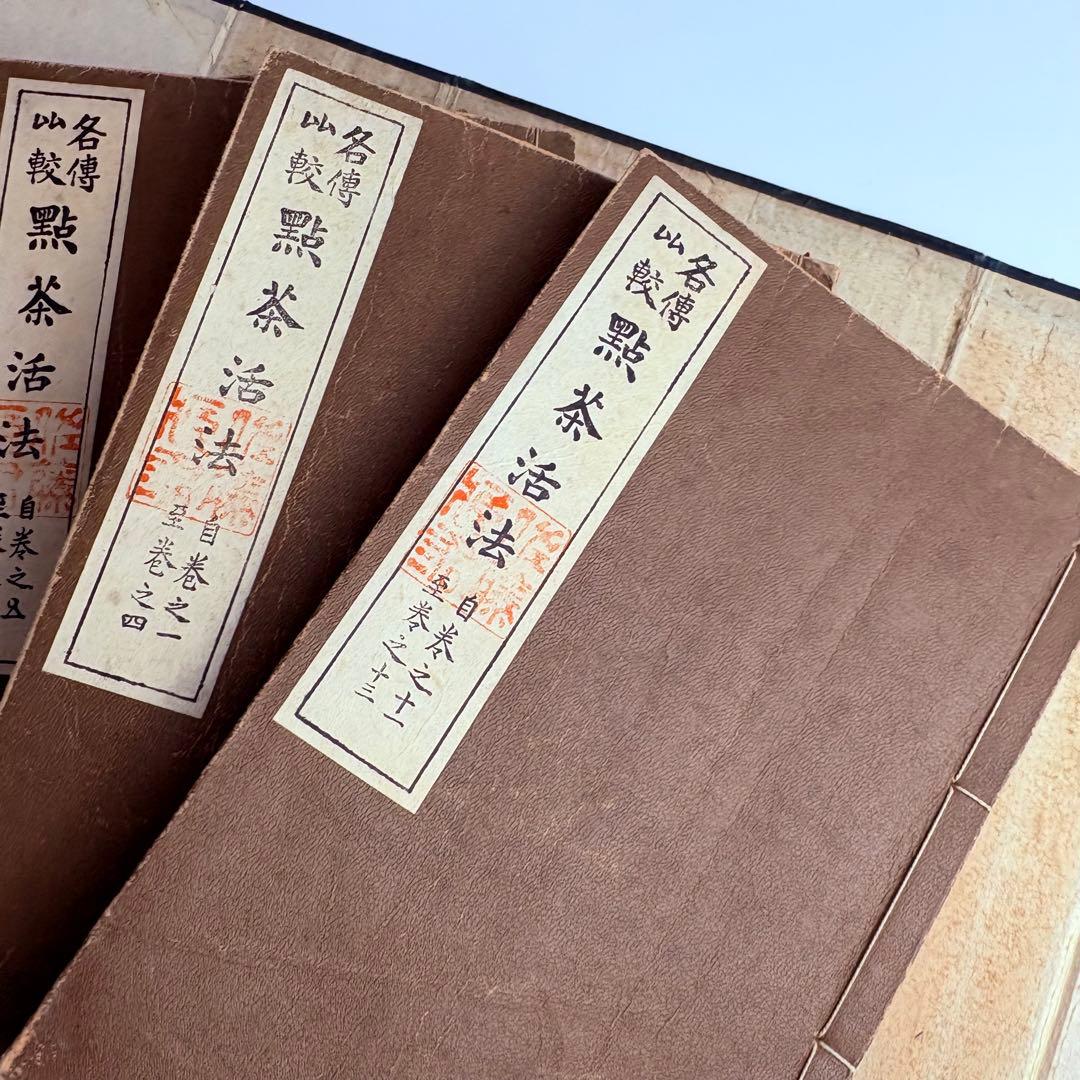 各傳
比較
點茶活法
自卷之十一
至卷之十三
各傳
比較
點茶活法
自卷之一
至卷之四
各傳
比較
點茶活法
自卷之五
至